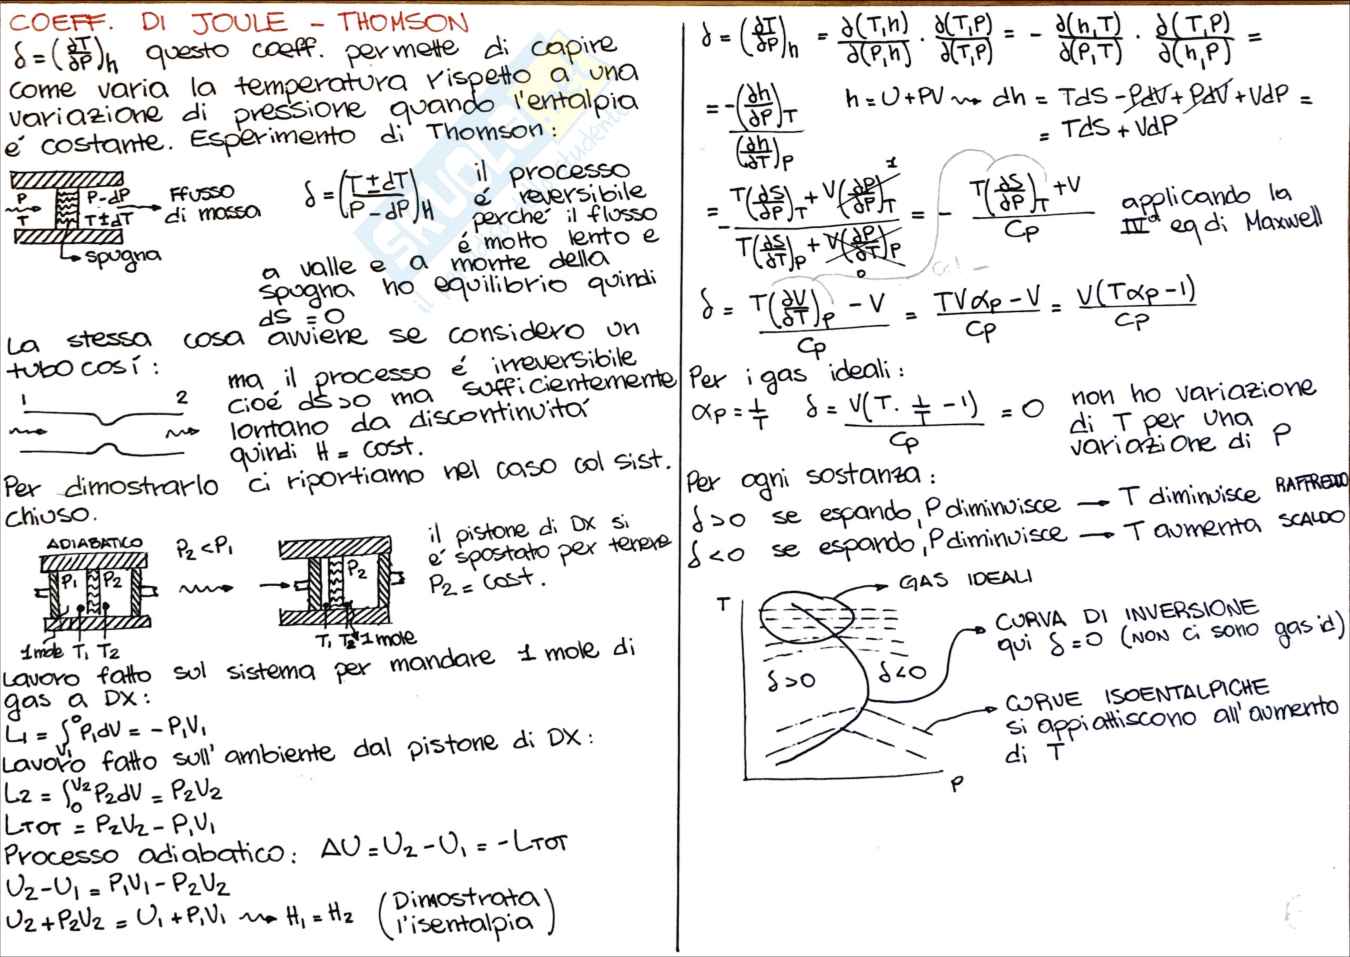 COEFF. DI JOULE - THOMSON
δ = (∂T/∂P)h questo coeff. permette di capire
come varia la temperatura rispetto a una
variazione di pressione quando l'entalpia
é costante. Esperimento di Thomson:
P P-dP FFUSSO
T T±dT di massa
spugna
δ = (T±dT/P-dP)H
il processo
é reversibile
perché il flusso
é molto lento e
a valle e a monte della
spugna ho equilibrio quindi
dS = 0
La stessa cosa avviene se considero un
tubo cosí:
1 2
ma il processo é irreversibile
cioé dS>0 ma sufficientemente
lontano da discontinuitá
quindi H = cost.
Per dimostrarlo ci riportiamo nel caso col sist.
chiuso.
ADIABATICO
P1 P2
1mole T1 T2
P2 < P1
P2
T1 T2 1 mole
il pistone di DX si
é spostato per tenere
P2 = cost.
Lavoro fatto sul sistema per mandare 1 mole di
gas a DX:
L1 = ∫V1^0 P1dV = -P1V1
Lavoro fatto sull'ambiente dal pistone di DX:
L2 = ∫0^V2 P2dV = P2V2
LTOT = P2V2 - P1V1
Processo adiabatico: ΔU = U2 - U1 = -LTOT
U2 - U1 = P1V1 - P2V2
U2 + P2V2 = U1 + P1V1 ⇝ H1 = H2 (Dimostrata l'isentalpia)
δ = (∂T/∂P)h = ∂(T,h)/∂(P,h) · ∂(T,P)/∂(T,P) = - ∂(h,T)/∂(P,T) · ∂(T,P)/∂(h,P) =
= -(∂h/∂P)T / (∂h/∂T)P h = U + PV ⇝ dh = TdS - PdV + PdV + VdP =
= TdS + VdP
= - T(∂S/∂P)T + V(∂P/∂P)T 1 / T(∂S/∂T)P + V(∂P/∂T)P 0 = - T(∂S/∂P)T + V / CP
applicando la
IVª eq di Maxwell
δ = T(∂V/∂T)P - V / CP = TVαP - V / CP = V(TαP - 1) / CP
Per i gas ideali:
αP = 1/T δ = V(T · 1/T - 1) / CP = 0
non ho variazione
di T per una
variazione di P
Per ogni sostanza:
δ>0 se espando, P diminuisce → T diminuisce RAFFREDDO
δ<0 se espando, P diminuisce → T aumenta SCALDO
GAS IDEALI
T
CURVA DI INVERSIONE
qui δ=0 (NON ci sono gas id)
δ>0 δ<0
CURVE ISOENTALPICHE
si appiattiscono all'aumento
di T
P
SKUOLA.net